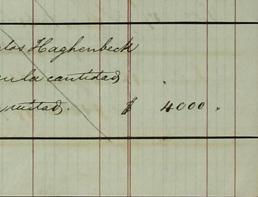 los Haghenbeck
en la cantidad
mitad. $ 4000.